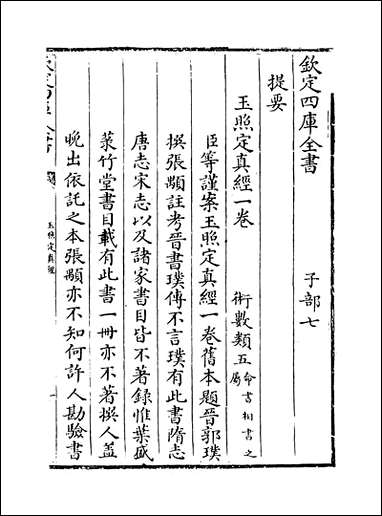 欽定四庫全書　子部七
提要
玉照定真經一卷　術數類五命書相書之屬
臣等謹案玉照定真經一卷舊本題晉郭璞
撰張顒註考晉書璞傳不言璞有此書隋志
唐志宋志以及諸家書目皆不著錄惟葉盛
菉竹堂書目載有此書一冊亦不著撰人蓋
晚出依託之本張顒亦不知何許人勘驗書
玉照定真經